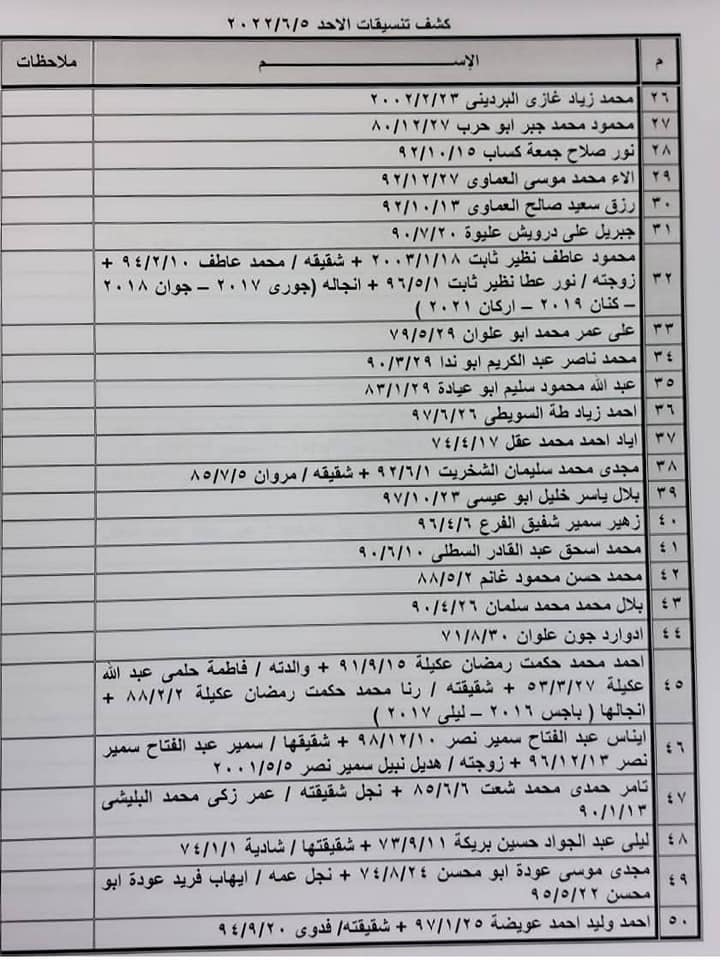 كشف تنسيقات الاحد ٢٠٢٢/٦/٥
م الإســــــــــــم ملاحظات
٢٦ محمد زياد غازى البردينى ٢٠٠٢/٢/٢٣
٢٧ محمود محمد جبر ابو حرب ٨٠/١٢/٢٧
٢٨ نور صلاح جمعة كساب ٩٢/١٠/١٥
٢٩ الاء محمد موسى العماوى ٩٢/١٢/٢٧
٣٠ رزق سعيد صالح العماوى ٩٢/١٠/١٣
٣١ جبريل على درويش عليوة ٩٠/٧/٢٠
محمود عاطف نظير ثابت ٢٠٠٣/١/١٨ + شقيقه / محمد عاطف ٩٤/٢/١٠ +
٣٢ زوجته / نور عطا نظير ثابت ٩٦/٥/١ + انجاله (جورى ٢٠١٧ – جوان ٢٠١٨
– كنان ٢٠١٩ – اركان ٢٠٢١ )
٣٣ على عمر محمد ابو علوان ٧٩/٥/٢٩
٣٤ محمد ناصر عبد الكريم ابو ندا ٩٠/٣/٢٩
٣٥ عبد الله محمود سليم ابو عيادة ٨٣/١/٢٩
٣٦ احمد زياد طة السويطى ٩٧/٦/٢٦
٣٧ اياد احمد محمد عقل ٧٤/٤/١٧
٣٨ مجدى محمد سليمان الشخريت ٩٢/٦/١ + شقيقه / مروان ٨٥/٧/٥
٣٩ بلال ياسر خليل ابو عيسى ٩٧/١٠/٢٣
٤٠ زهير سمير شفيق الفرع ٩٦/٤/٦
٤١ محمد اسحق عبد القادر السطلى ٩٠/٦/١٠
٤٢ محمد حسن محمود غانم ٨٨/٥/٢
٤٣ بلال محمد محمد سلمان ٩٠/٤/٢٦
٤٤ ادوارد جون علوان ٧١/٨/٣٠
احمد محمد حكمت رمضان عكيلة ٩١/٩/١٥ + والدته / فاطمة حلمى عبد الله
٤٥ عكيلة ٥٣/٣/٢٧ + شقيقته / رنا محمد حكمت رمضان عكيلة ٨٨/٢/٢ +
انجالها ( باجس ٢٠١٦ – ليلى ٢٠١٧ )
٤٦ ايناس عبد الفتاح سمير نصر ٩٨/١٢/١٠ + شقيقها / سمير عبد الفتاح سمير
نصر ٩٦/١٢/١٣ + زوجته / هديل نبيل سمير نصر ٢٠٠١/٥/٥
٤٧ تامر حمدى محمد شعت ٨٥/٦/٦ + نجل شقيقته / عمر زكى محمد البليشى
٩٠/١/١٣
٤٨ ليلى عبد الجواد حسين بريكة ٧٣/٩/١١ + شقيقتها / شادية ٧٤/١/١
٤٩ مجدى موسى عودة ابو محسن ٧٤/٨/٢٤ + نجل عمه / ايهاب فريد عودة ابو
محسن ٩٥/٥/٢٢
٥٠ احمد وليد احمد عويضة ٩٧/١/٢٥ + شقيقته/ فدوى ٩٤/٩/٢٠